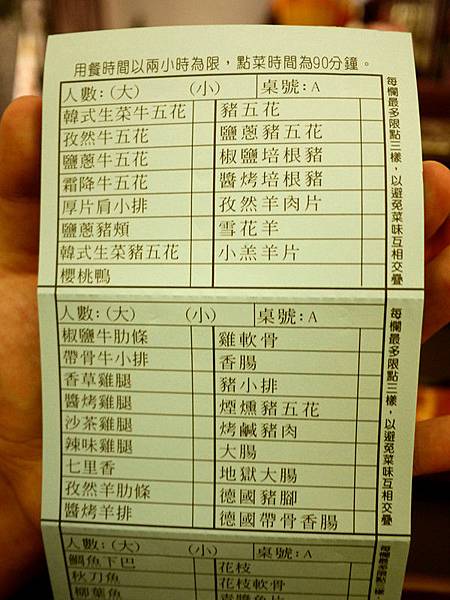 用餐時間以兩小時為限，點菜時間為90分鐘。
人數:(大) (小) 桌號:A
韓式生菜牛五花 豬五花
孜然牛五花 鹽蔥豬五花
鹽蔥牛五花 椒鹽培根豬
霜降牛五花 醬烤培根豬
厚片肩小排 孜然羊肉片
鹽蔥豬頰 雪花羊
韓式生菜豬五花 小羔羊片
櫻桃鴨
每欄最多限點三樣，以避免菜味互相交疊
人數:(大) (小) 桌號:A
椒鹽牛肋條 雞軟骨
帶骨牛小排 香腸
香草雞腿 豬小排
醬烤雞腿 煙燻豬五花
沙茶雞腿 烤鹹豬肉
辣味雞腿 大腸
七里香 地獄大腸
孜然羊肋條 德國豬腳
醬烤羊排 德國帶骨香腸
每欄最多限點三樣，以避免菜味互相交疊
人數:(大) (小) 桌號:A
鯛魚下巴 花枝
秋刀魚 花枝軟骨
柳葉魚
每欄最多限點三樣